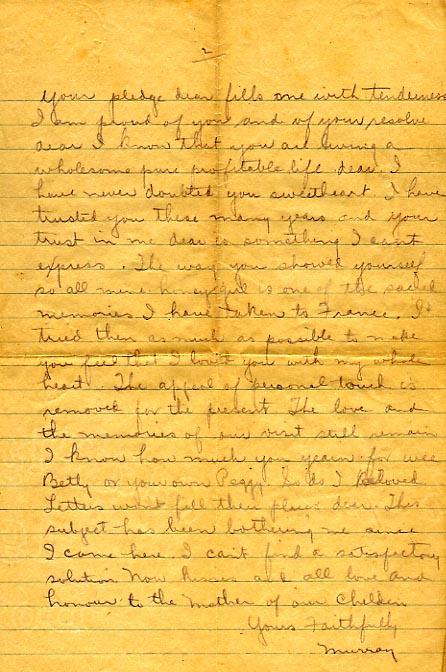 2
Your pledge dear fills one with tenderness
I am proud of you and of your resolve
dear I know that you are living a
wholesome pure profitable life dear. I
have never doubted you sweetheart. I have
trusted you these many years and your
trust in me dear is something I cant
express. The way you showed yourself
so all mine honey girl is one of the sacred
memories I have taken to France. I
tried then as much as possible to make
you feel that I loved you with my whole
heart. The appeal of personal touch is
removed for the present The love and
the memories of our visit still remain
I know how much you yearn for wee
Betty or your own Peggy. So do I Beloved
Letters wont fill their place dear. This
subject has been bothering me since
I came here. I cant find a satisfactory
solution Now kisses and all love and
honour to the Mother of our Children
Yours Faithfully
Murray